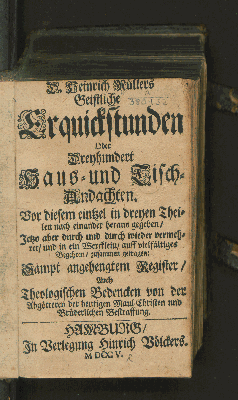 D. Heinrich Müllers
Geistliche
Erquickstunden
Oder
Dreyhundert
Haus- und Tisch-
Andachten.
Vor diesem eintzel in dreyen Thei-
len nach einander heraus gegeben/
Jetzo aber durch und durch wieder vermeh-
ret/ und in ein Wercklein/ auff vielfältiges
Begehren/ zusammen getragen:
Sampt angehengtem Register/
Auch
Theologischen Bedencken von der
Abgötterey der heutigen Maul-Christen und
Brüderlichen Bestraffung.
HAMBURG/
In Verlegung Hinrich Völckers.